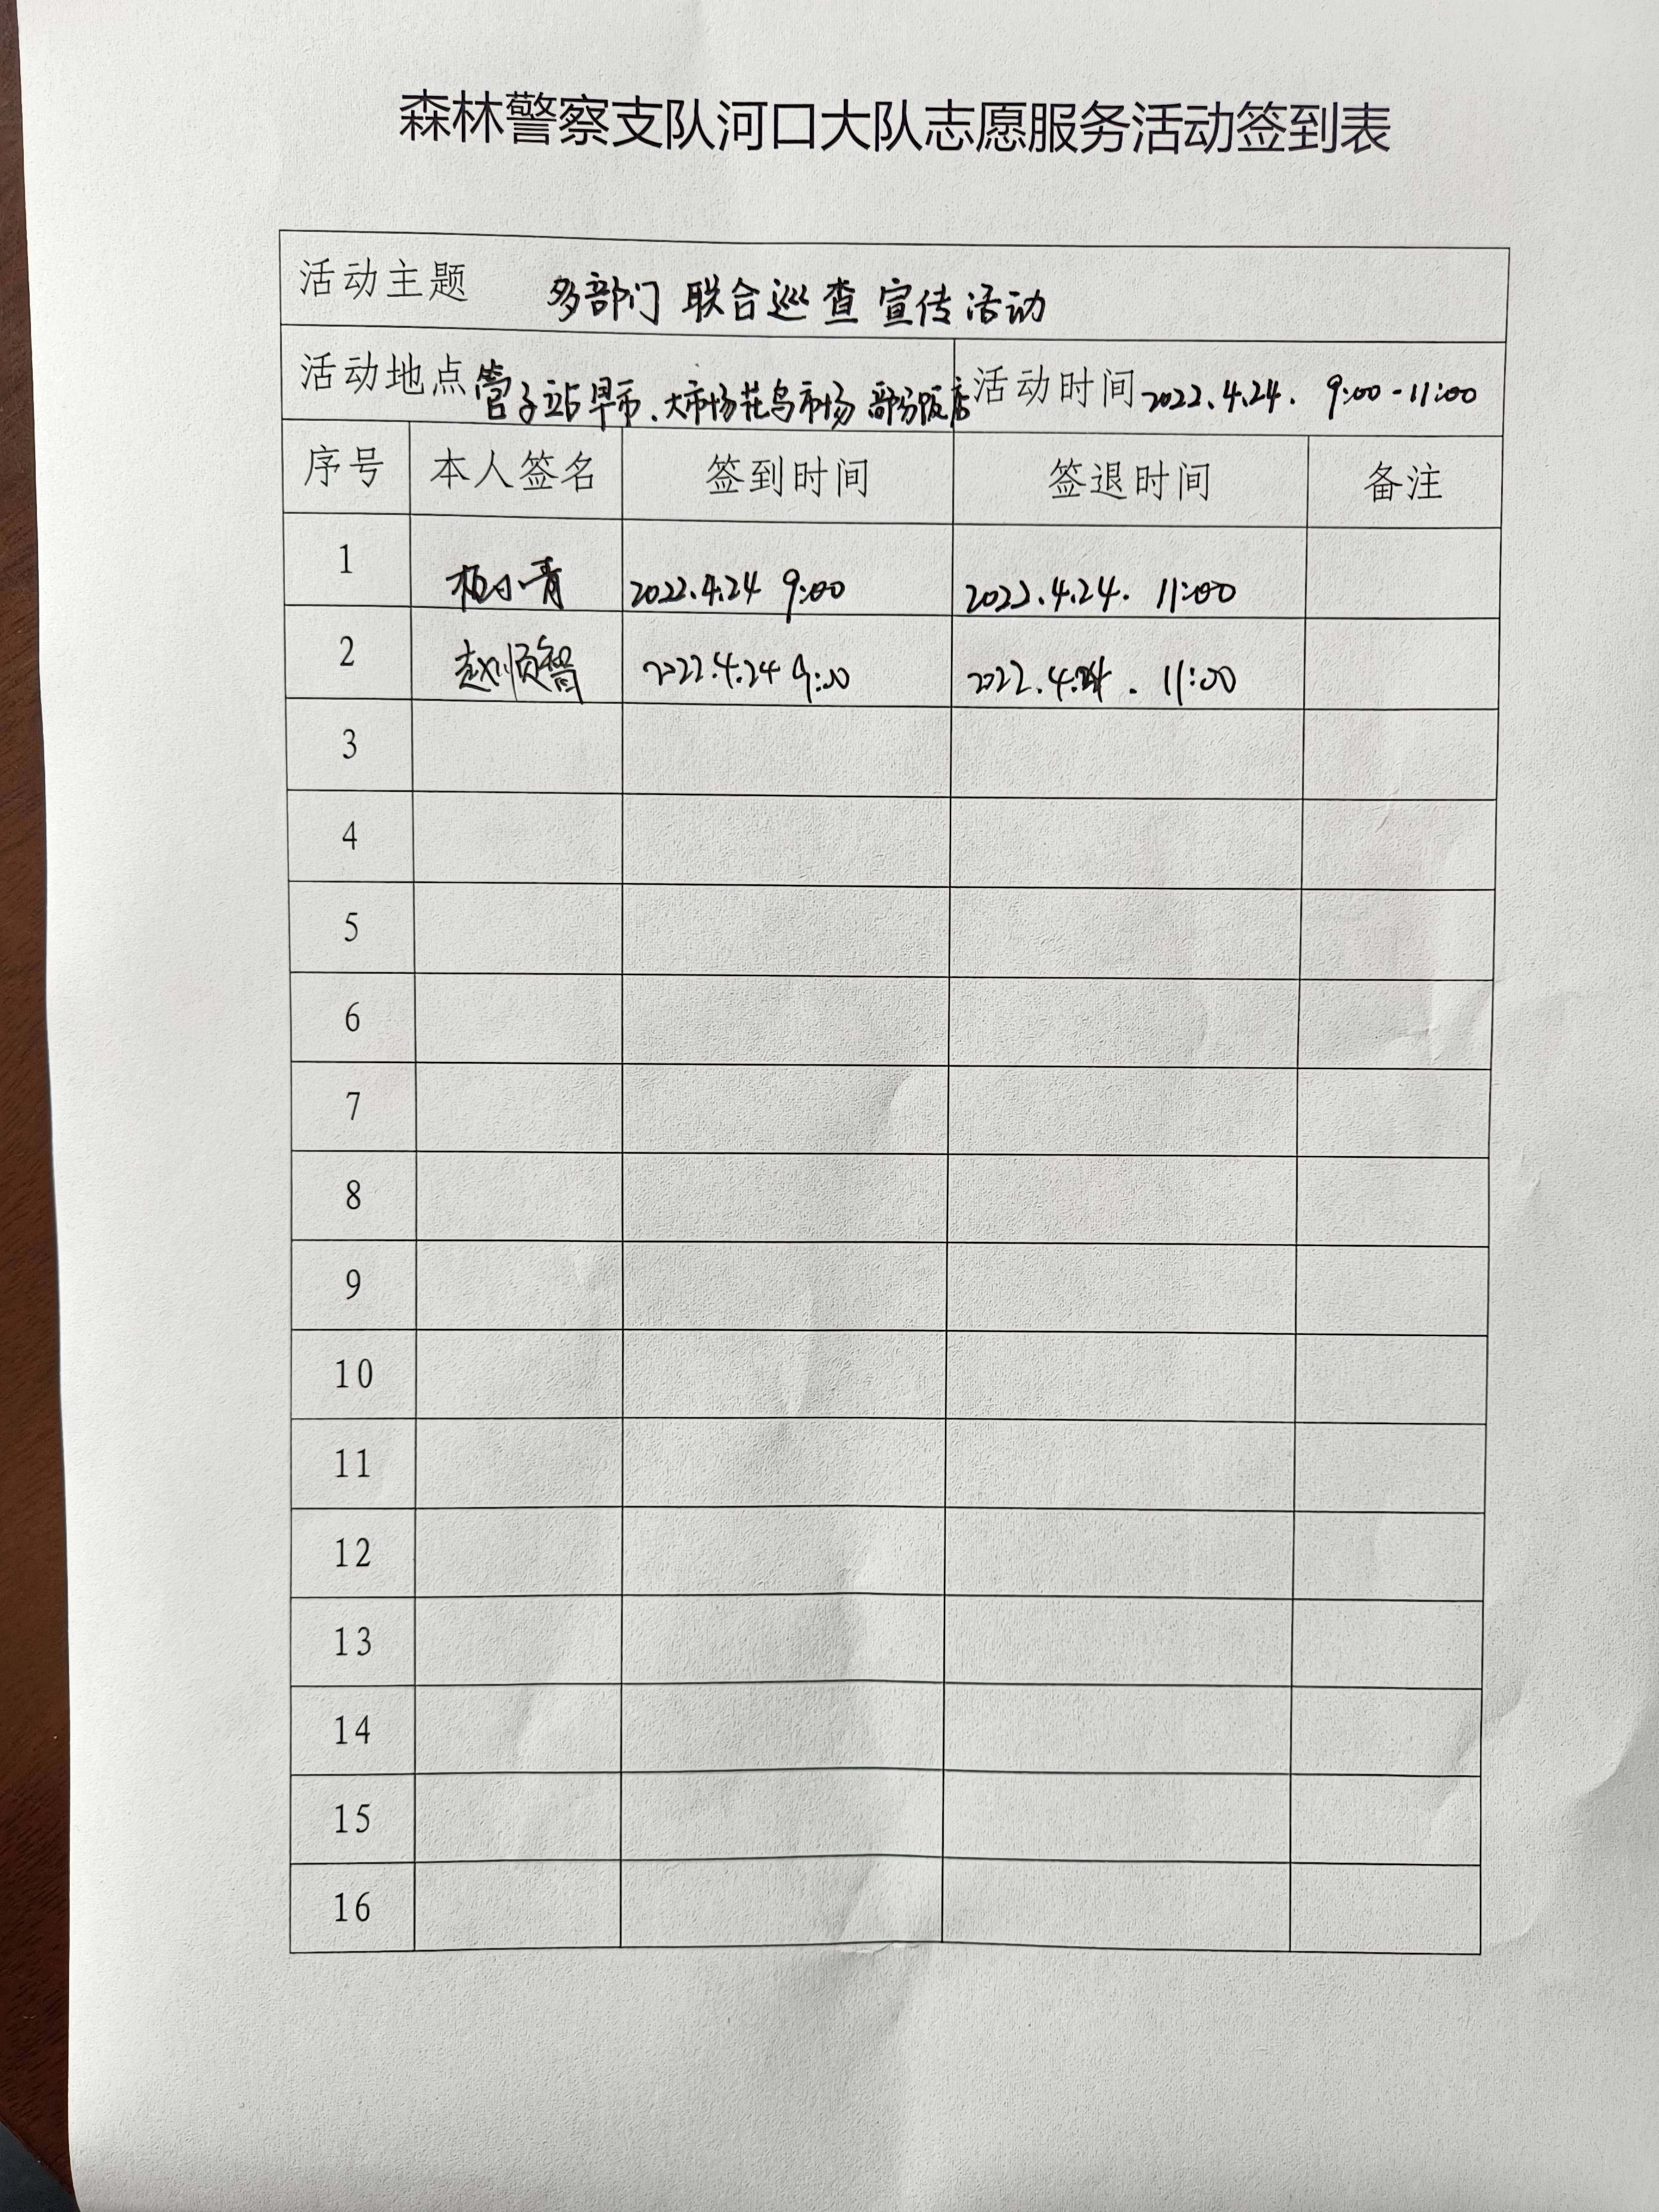 森林警察支队河口大队志愿服务活动签到表
活动主题 多部门联合巡查宣传活动
活动地点 管子站早市、大市场花鸟市场 部分饭店 活动时间 2022.4.24. 9:00-11:00
序号 本人签名 签到时间 签退时间 备注
1 小青 2022.4.24 9:00 2022.4.24. 11:00
2 赵顺智 2022.4.24 9:00 2022.4.24. 11:00
3
4
5
6
7
8
9
10
11
12
13
14
15
16